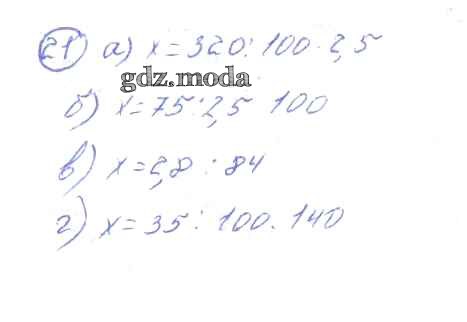 21) а) x = 320 : 100 · 2,5
gdz.moda
б) x = 75 : 2,5 100
в) x = 2,8 : 84
г) x = 35 : 100 · 140